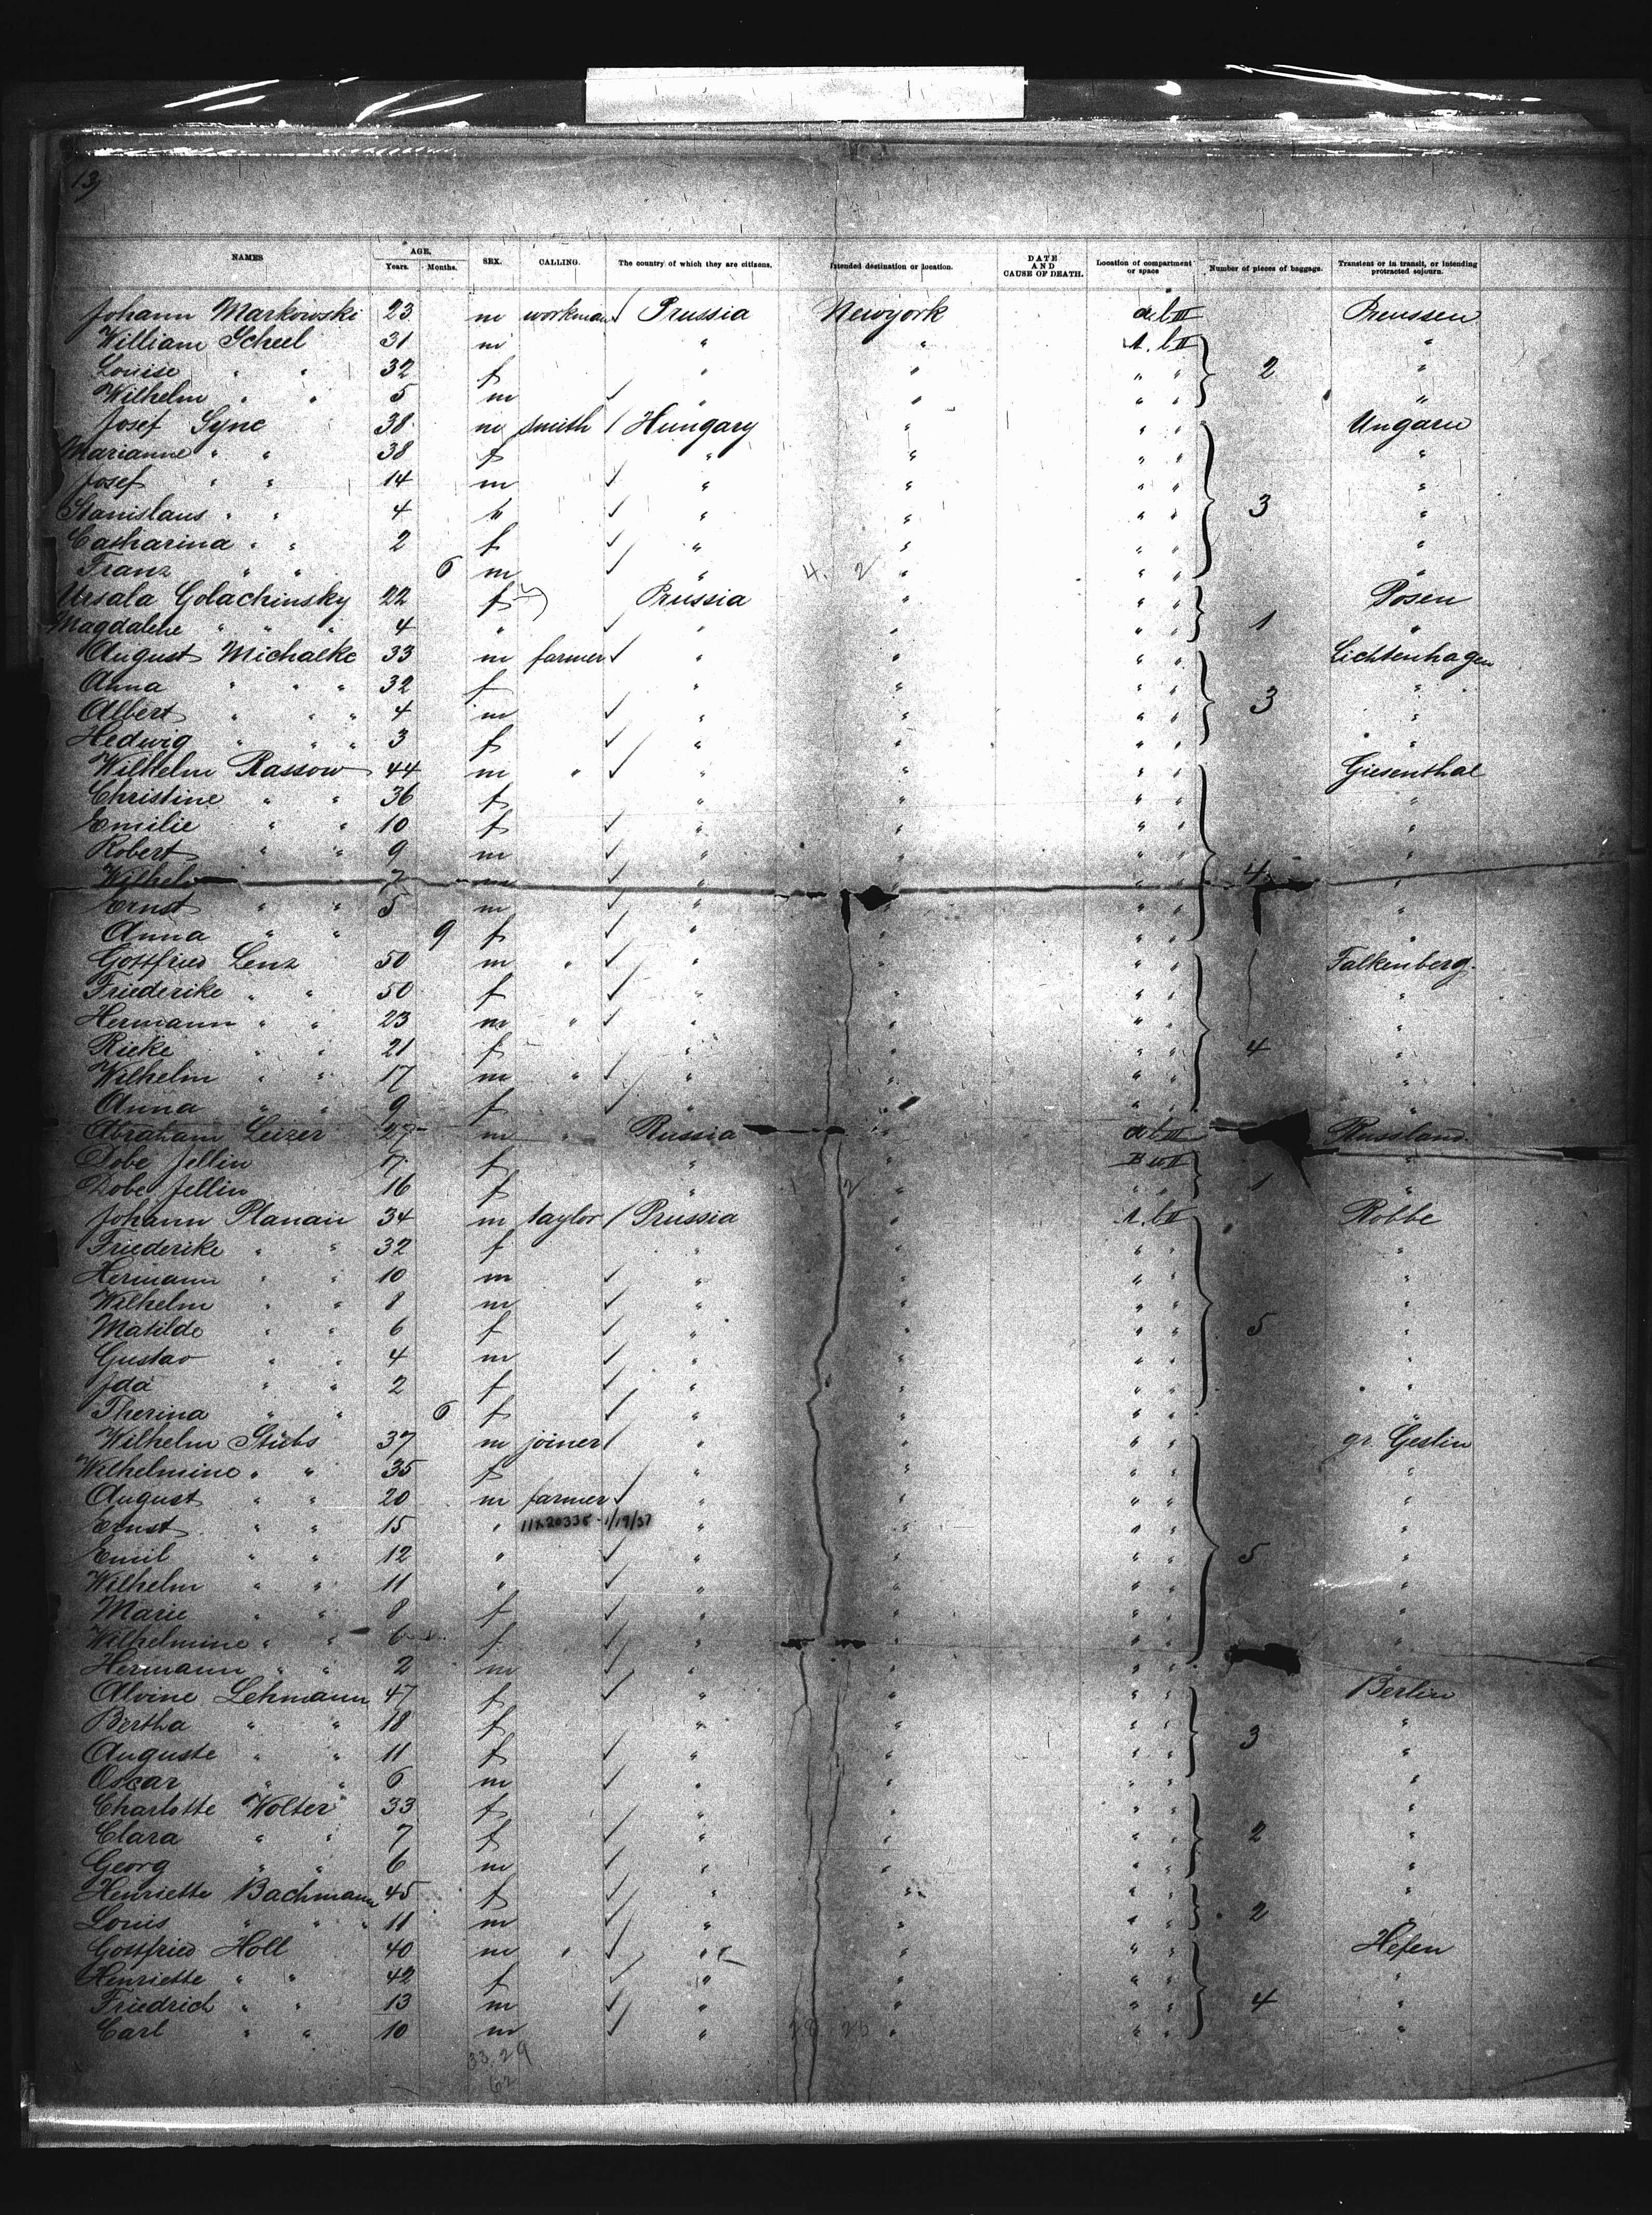 13)
NAMES AGE. Years. Months. SEX. CALLING. The country of which they are citizens. Intended destination or location. DATE AND CAUSE OF DEATH. Location of compartment or space Number of pieces of baggage. Transient or in transit, or intending protracted sojourn.
Johann Markowski 23 m workman / Prussia Newyork Preussen
William Scheel 31 m " " "
Louise " " 32 f " " " " 2 "
Wilhelm " " 5 m ✓ " " " " "
Josef Sync 38 m smith / Hungary " " " Ungarn
Marianne " " 38 f " " " " "
Josef " " 14 m ✓ " " " " "
Stanislaus " " 4 " ✓ " " " " 3 "
Catharina " " 2 f ✓ " " " " "
Franz " " 6 m ✓ " 4. 2 " " " "
Ursala Golachinsky 22 f Prussia " " " Posen
Magdalene " " " 4 " ✓ " " " " 1 "
August Michalke 33 m farmer ✓ " " " " Lichtenhagen
Anna " " " 32 f " " " " "
Albert " " " 4 m ✓ " " " " 3 "
Hedwig " " " 3 f ✓ " " " " "
Wilhelm Rassow 44 m " ✓ " " " " Giesenthal
Christine " " 36 f " " " " "
Emilie " " 10 f ✓ " " " " "
Robert " " 9 m ✓ " " " " "
Wilhelm 7 m ✓ " " " 4 "
Ernst " " 5 m ✓ " " " "
Anna " " 9 f ✓ " " " " "
Gottfried Lenz 50 m " ✓ " " " " Falkenberg.
Friederike " " 50 f ✓ " " " " "
Hermann " " 23 m " ✓ " " " " "
Rieke " " 21 f " " " " 4 "
Wilhelm " " 17 m " ✓ " " " " "
Anna " " 9 f ✓ " " " " "
Abraham Leizer 27 m " Russia " Russland.
Dobe Jellin f " " "
Dobe Jellin 16 f " 1 2 " " " 1 "
Johann Planair 34 m taylor / Prussia " Robbe
Friederike " " 32 f " " " " "
Hermann " " 10 m ✓ " " " " "
Wilhelm " " 8 m ✓ " " " " "
Matilde " " 6 f ✓ " " " " 5 "
Gustav " " 4 m ✓ " " " " "
Ida " " 2 f ✓ " " " " "
Therina " " 6 f ✓ " " " " "
Wilhelm Stübs 37 m joiner / " " " " gr. Gestin
Wilhelmine " " 35 f " " " " "
August " " 20 m farmer ✓ " " " " "
Ernst " " 15 " 1/19/37 " " " " "
Emil " " 12 " ✓ " " " " 5 "
Wilhelm " " 11 " ✓ " " " " "
Marie " " 8 f ✓ " " " " "
Wilhelmine " " 6 f ✓ " " " " "
Hermann " " 2 m ✓ " " " " "
Alvine Lehmann 47 f ✓ " " " " Berlin
Bertha " " 18 f " " " " "
Auguste " " 11 f ✓ " " " " 3 "
Oscar " " 6 m ✓ " " " " "
Charlotte Wolter 33 f ✓ " " " " "
Clara " " 7 f ✓ " " " " 2 "
Georg " " 6 m ✓ " " " " "
Henriette Bachmann 45 f ✓ " " " " "
Louis " " " 11 m ✓ " " " " 2 "
Gottfried Holl 40 m " ✓ " " " " Hefen
Henriette " " 42 f ✓ " " " " "
Friedrich " " 13 m ✓ " " " " 4 "
Carl " " 10 m ✓ " " " " "
33. 29
62